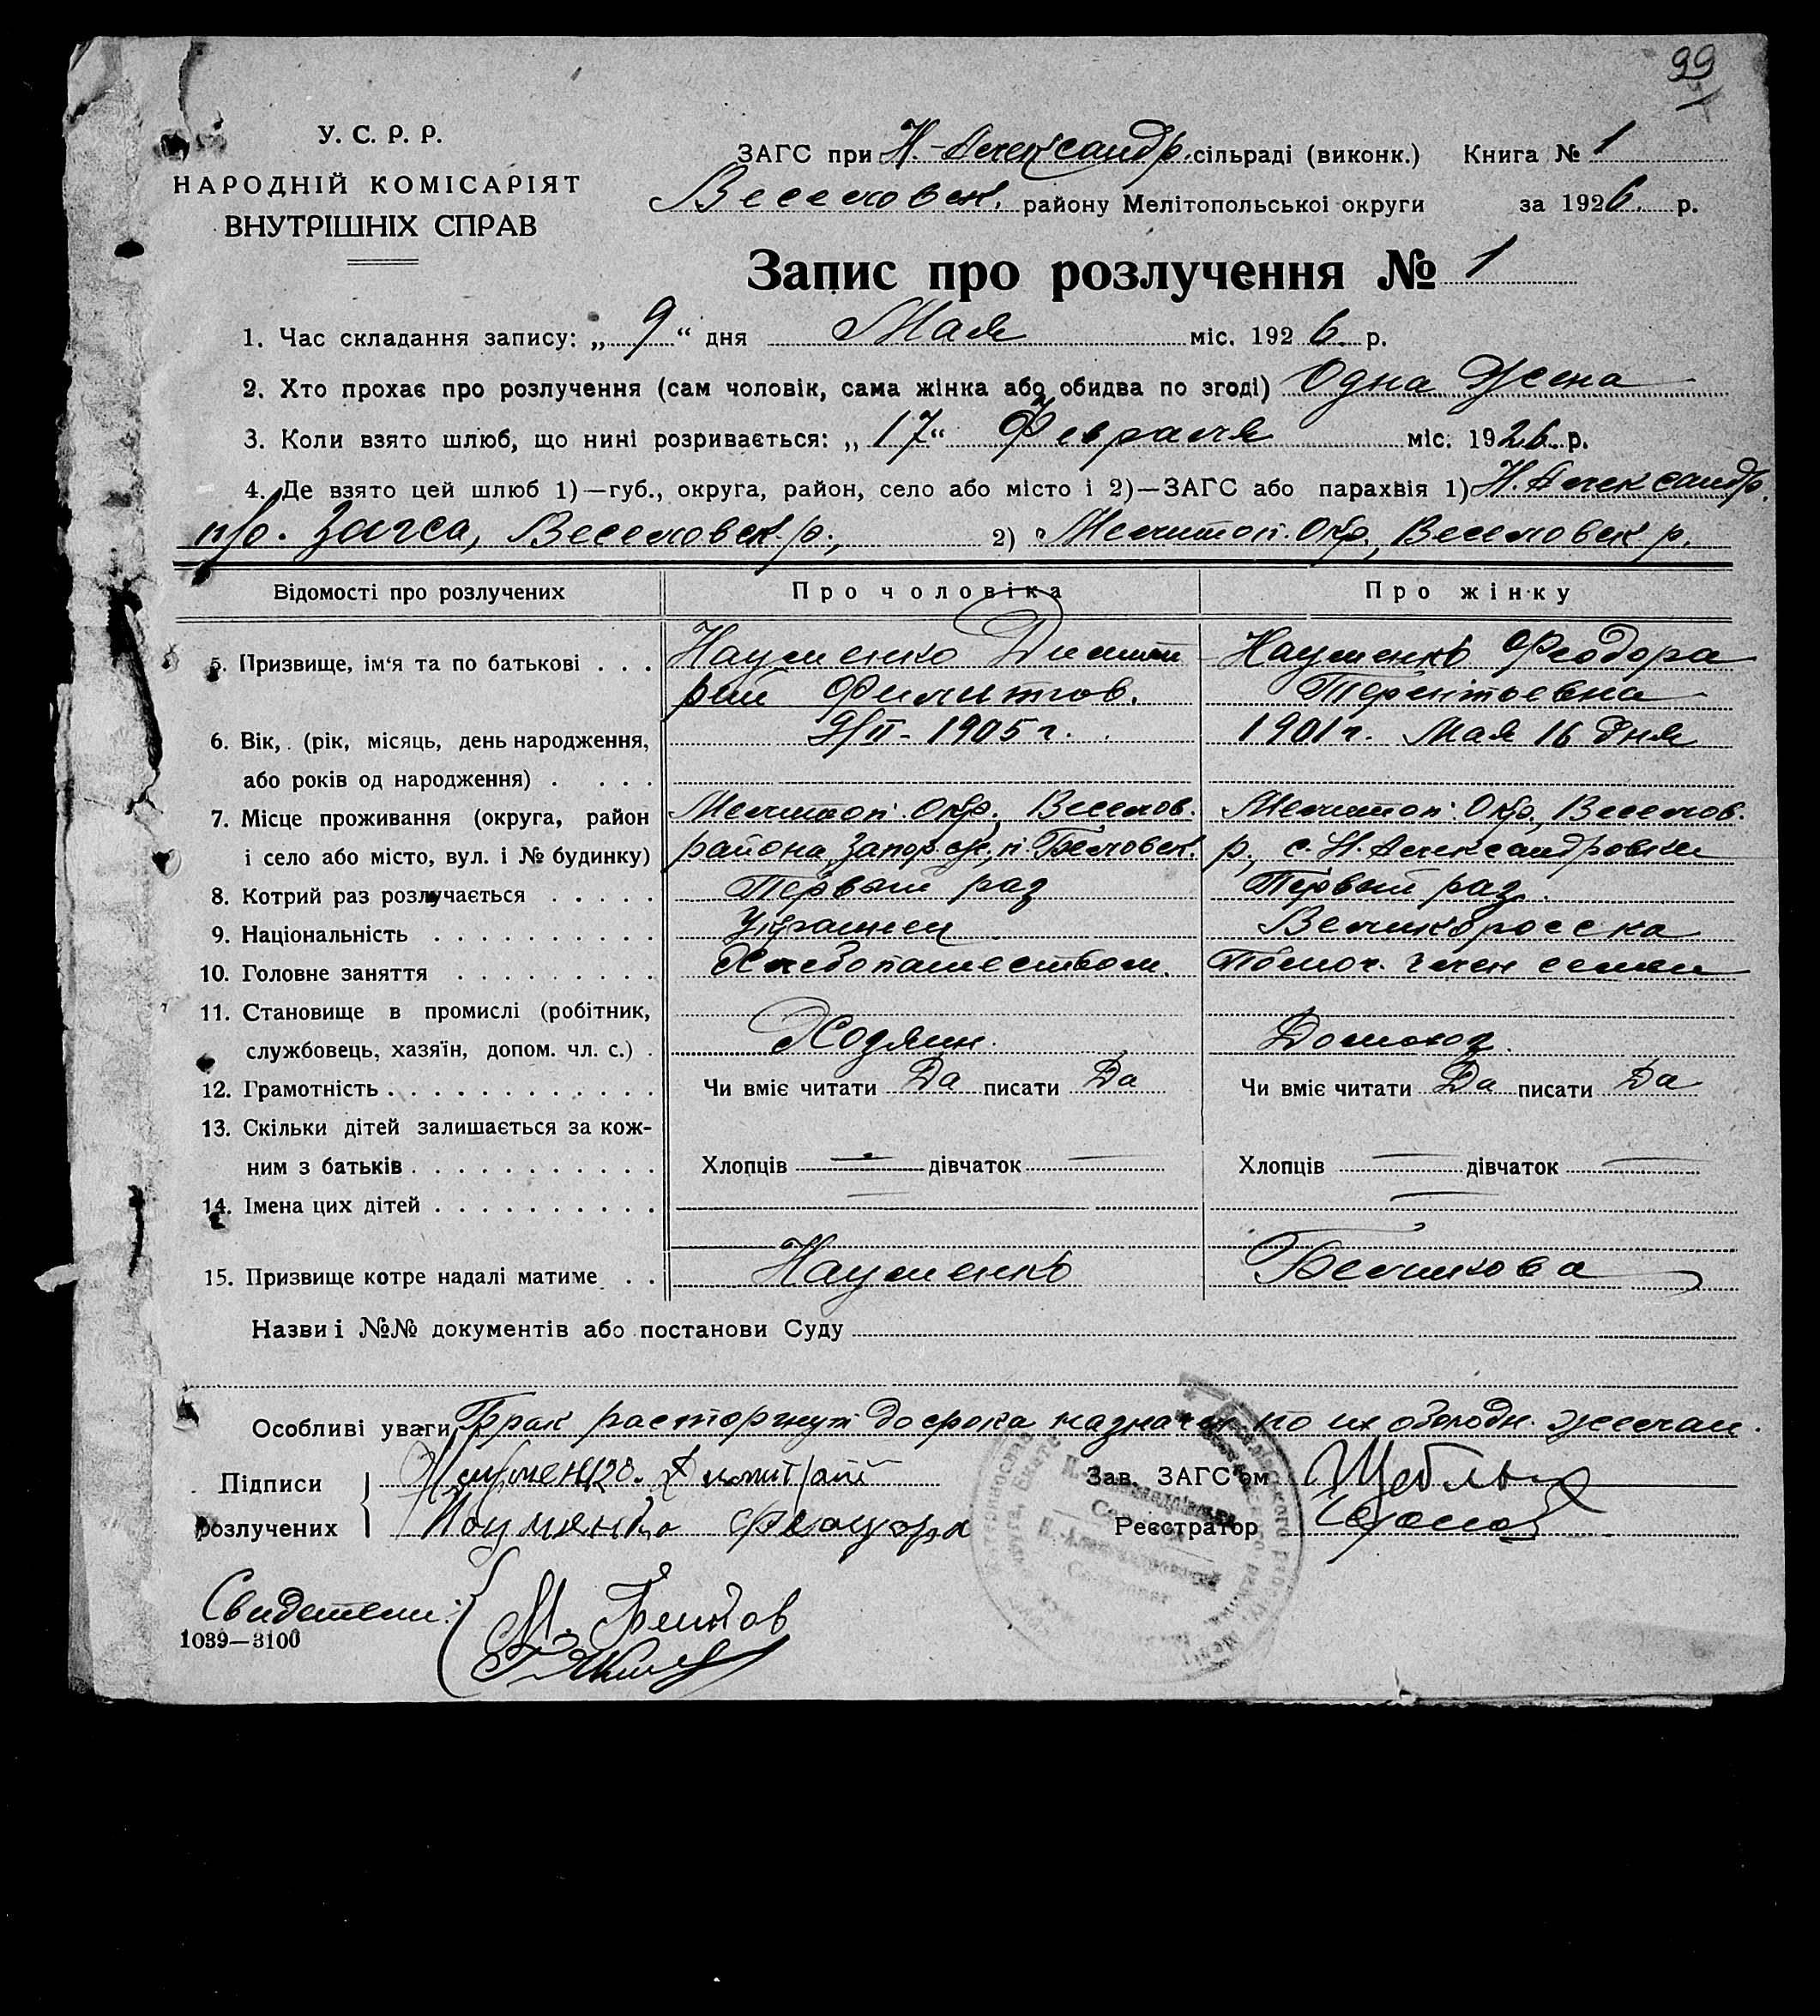 99
У. С. Р. Р.
НАРОДНІЙ КОМІСАРІЯТ
ВНУТРІШНІХ СПРАВ
ЗАГС при Н.-Александр. сільраді (виконк.) Книга № 1
Веселовск. району Мелітопольської округи за 1926 р.
Запис про розлучення № 1
1. Час складання запису: „ 9 “ дня Мая міс. 1926 р.
2. Хто прохає про розлучення (сам чоловік, сама жінка або обидва по згоді) Одна Жена
3. Коли взято шлюб, що нині розривається: „ 17 “ Февраля міс. 1926 р.
4. Де взято цей шлюб 1)—губ., округа, район, село або місто і 2)—ЗАГС або парахвія 1) Н. Александр.
п/о. Загса, Веселовск. р., 2) Мелитоп. Окр., Веселовск р.
Відомості про розлучених Про чоловіка Про жінку
5. Призвище, ім‘я та по батькові . . . Науменко Димит Науменко Феодора
рий Филитов. Терентьевна
6. Вік, (рік, місяць, день народження, 9/II - 1905 г. 1901 г. Мая 16 дня
або років од народження) . . . . .
7. Місце проживання (округа, район Мелитоп. Окр., Веселов. Мелитоп. Окр., Веселов.
і село або місто, вул. і № будинку) района, п. Беловск. р., с. Н. Александровки
8. Котрий раз розлучається . . . . . Первый раз Первый раз.
9. Національність . . . . . . . . . . Украинец Великоросска
10. Головне заняття . . . . . . . . . Хлебопашеством. Помоч. член семьи
11. Становище в промислі (робітник,
службовець, хазяїн, допом. чл. с.) . Хозяин. Домохоз.
12. Грамотність . . . . . . . . . . . . Чи вміє читати Да писати Да Чи вміє читати Да писати Да
13. Скільки дітей залишається за кож-
ним з батьків . . . . . . . . . . . Хлопців — дівчаток — Хлопців — дівчаток —
14. Імена цих дітей . . . . . . . . . . — —
15. Призвище котре надалі матиме . . Науменко Беликова
Назви і №№ документів або постанови Суду
Особливі уваги Брак расторгнут до срока назначен по их обоюдн. желан.
Підписи Науменко Димитрий Зав. ЗАГС'ом
розлучених Науменко Феодора Реєстратор
Свидетели:
1039—3100